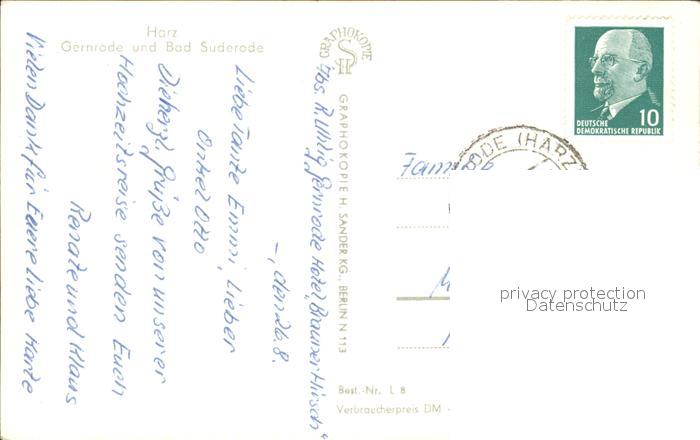 Harz
Gernrode und Bad Suderode
GRAPHOKOPIE
GRAPHOKOPIE H. SANDER KG., BERLIN N 113
Abs. R. Uhlig Gernrode Hotel „Brauner Hirsch“
–, den 26.8.
Liebe Tante Emmi, Lieber
Onkel Otto
Die herzl. Grüße von unserer
Hochzeitsreise senden Euch
Renate und Klaus
Vielen Dank für Euere liebe Karte
10
DEUTSCHE
DEMOKRATISCHE REPUBLIK
ODE (HARZ
Fam
privacy protection
Datenschutz
Best.-Nr. L 8
Verbraucherpreis DM -